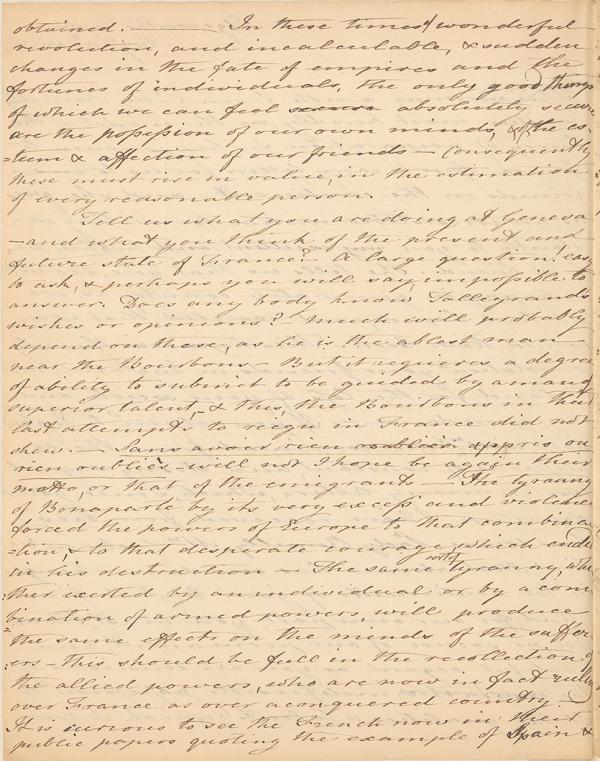 obtained. — In these times of wonderful
revolution, and incalculable, & sudden
changes in the fate of empires and the
fortunes of individuals, the only good things
of which we can feel secure absolutely secure
are the possession of our own minds, & of the es-
=teem & affection of our friends — Consequently
these must rise in value, in the estimation
of every reasonable person.
Tell us what you are doing at Geneva
— and what you think of the present and
future state of France? A large question! easy
to ask, & perhaps you will say, impossible to
answer. Does any body know Talleyrands
wishes or opinions? — Much will probably
depend on these, as he is the ablest man
near the Bourbons — But it requires a degree
of ability to submit to be guided by a man of
superior talent, — & this, the Bourbons in their
last attempts to reign in France did not
shew. — Sans avoir rien oublièn appris ou
rien oubliès — will not I hope be again their
motto, or that of the emigrants — The tyranny
of Bonaparte by its very excess and violence
forced the powers of Europe to that combina
=tion, & to that desperate courage which ended
in his destruction — The same sort of tyranny, whe
ther exerted by an individual or by a com
bination of armed powers, will produce
the same effects on the minds of the suffer-
:ers — this should be full in the recollection of
the allied powers, who are now in fact ruling
over France as over a conquered country. —
It is curious to see the French now in their
public papers quoting the example of Spain &